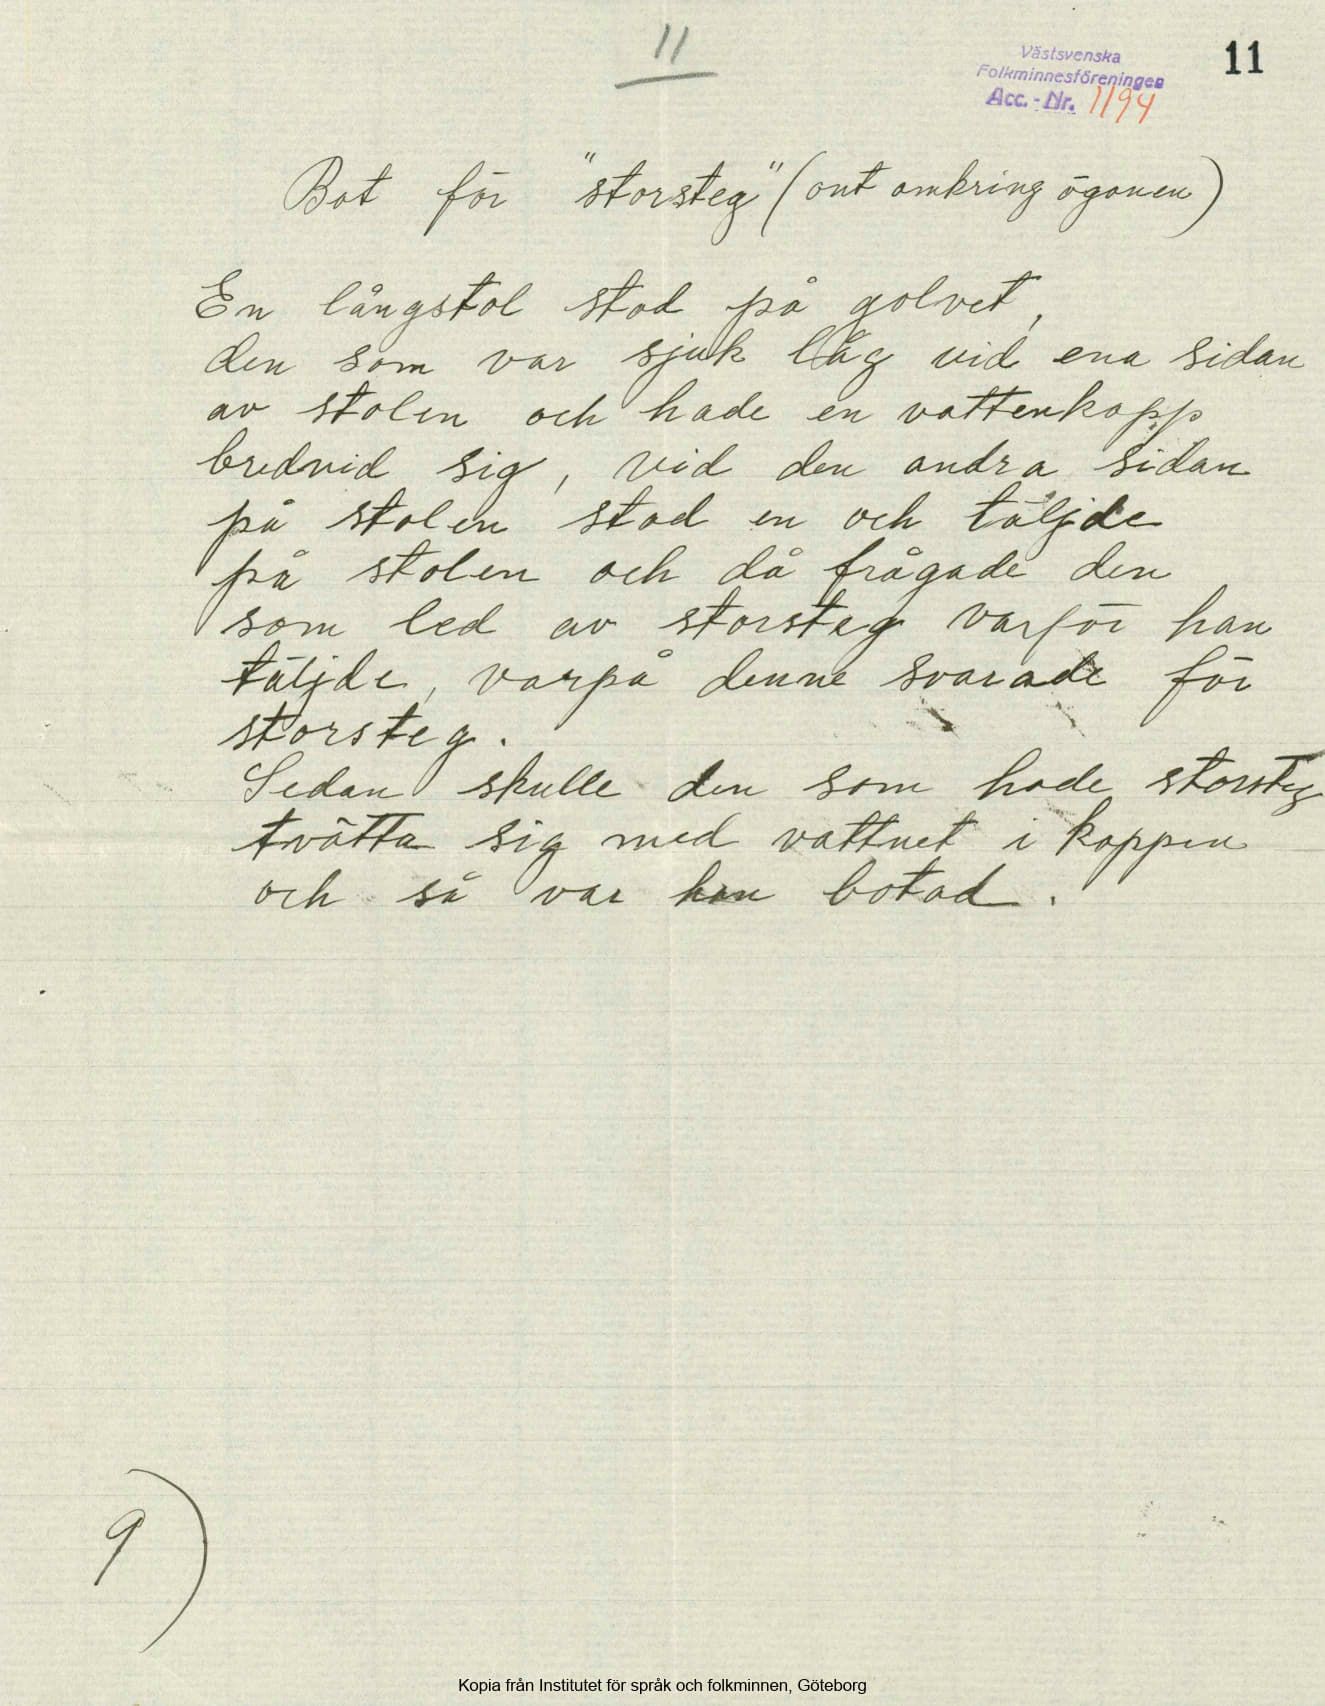 11
Västsvenska
Folkminnesföreningen
Acc. - Nr. 1194
11
Bot för "storsteg" (ont omkring ögonen)
En långstol stod på golvet,
den som var sjuk låg vid ena sidan
av stolen och hade en vattenkopp
bredvid sig, vid den andra sidan
på stolen stod en och täljde
på stolen och då frågade den
som led av storsteg varför han
täljde, varpå denne svarade för
storsteg.
Sedan skulle den som hade storsteg
tvätta sig med vattnet i koppen
och så var han botad.
9)
Kopia från Institutet för språk och folkminnen, Göteborg